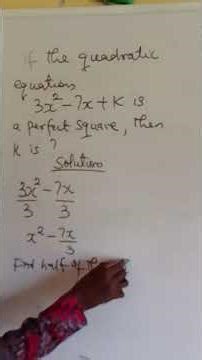 if the quadratic
equation
3x² - 7x + K is
a perfect square, then
K is ?
Solution
3x²/3 - 7x/3
x² - 7x/3
Find half of